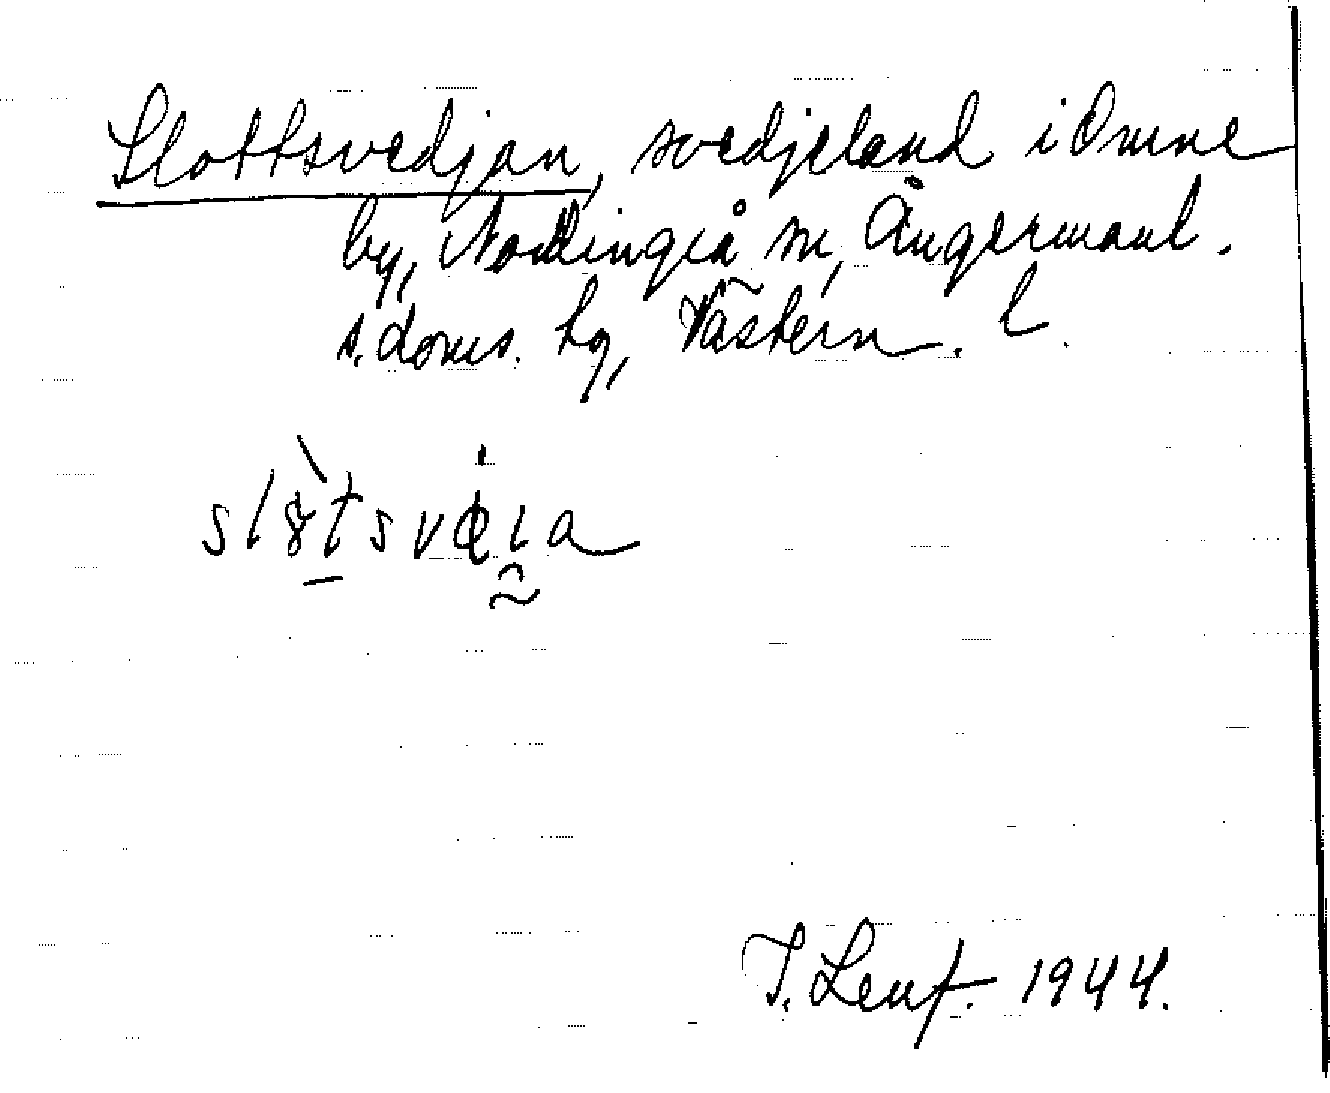 Slottsvedjan, svedjeland i Omne
by, Nordingrå sn, Ångermanl.
s. doms. hg, Västern. l.
I. Lenf. 1944.